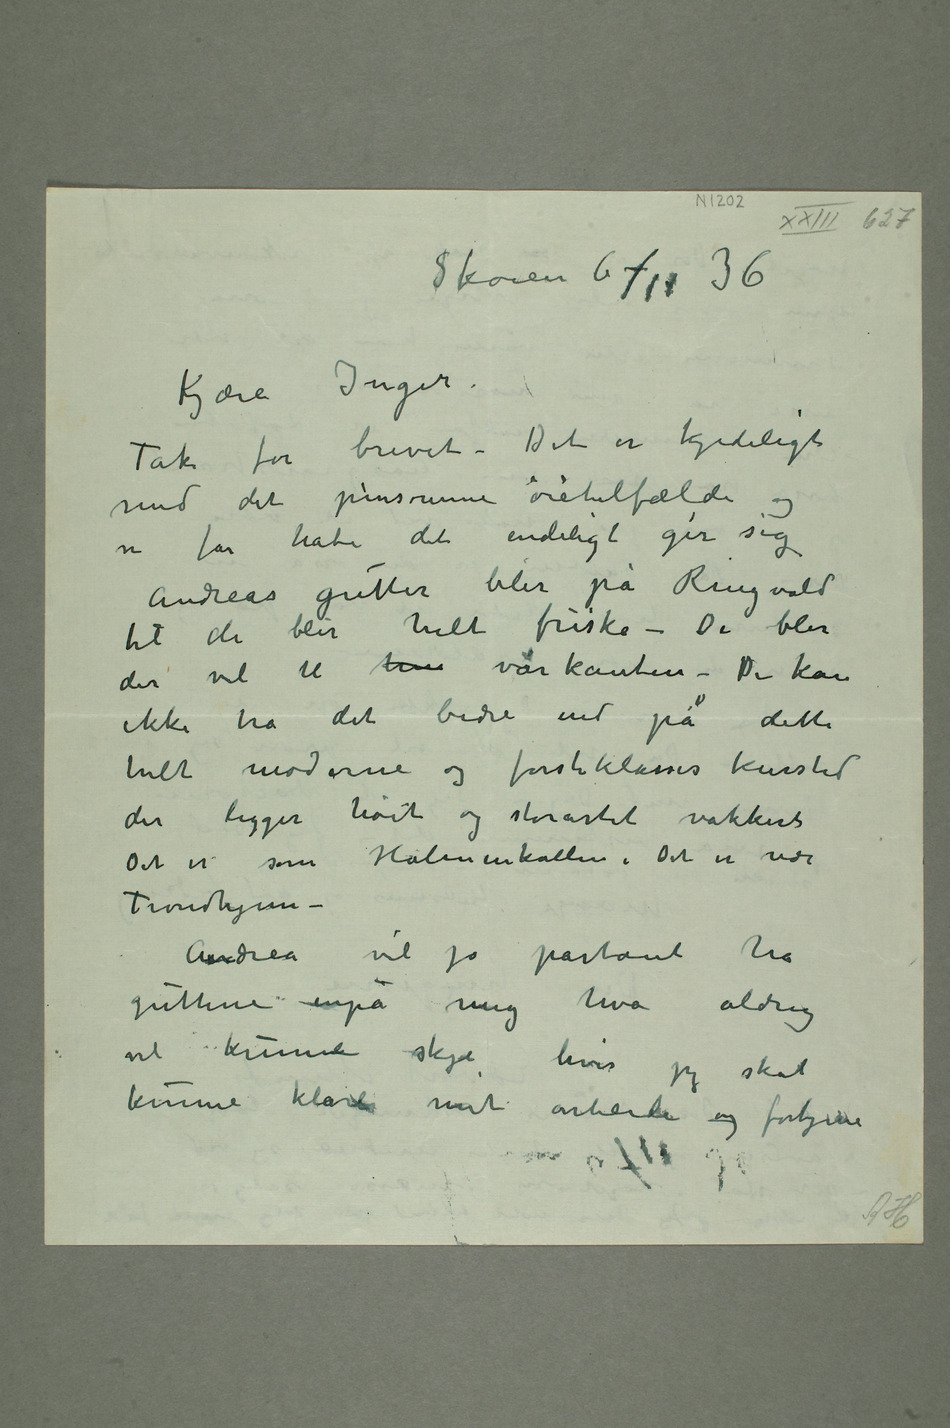 N1202
XXIII 627
Skøien 6/11 36
Kjære Inger.
Tak for brevet – Det er kjedeligt
med det pinsomme øietilfælde og
vi får håbe det endeligt gir sig
Andreas gutter blir på Ringvold
til de blir helt friske – De blir
der vel til vårkanten – De kan
ikke ha det bedre end på dette
helt moderne og førsteklasses kursted
der ligger høit og storartet vakkert
Det er som Holmenkollen. Det er nær
Trondhjem –
Andrea vil jo partout ha
guttene inpå mig hva aldrig
vil kunne skje, hvis jeg skal
kunne klare mit arbeide og fortjene
AH